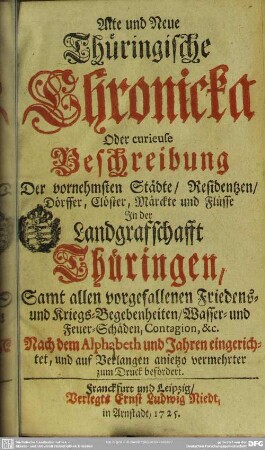 Alte und Neue
Thüringische
Chronicka
Oder curieuse
Beschreibung
Der vornehmsten Städte/ Residentzen/
Dörffer, Clöster, Märckte und Flüsse
In der
Landgrafschafft
Thüringen,
Samt allen vorgefallenen Friedens-
und Kriegs-Begebenheiten/Wasser- und
Feuer-Schäden, Contagion, &c.
Nach dem Alphabeth und Jahren eingerich-
tet, und auf Verlangen anietzo vermehrter
zum Druck befördert.
Franckfurt und Leipzig/
Verlegts Ernst Ludwig Niedt,
in Arnstadt, 1725.
DFG